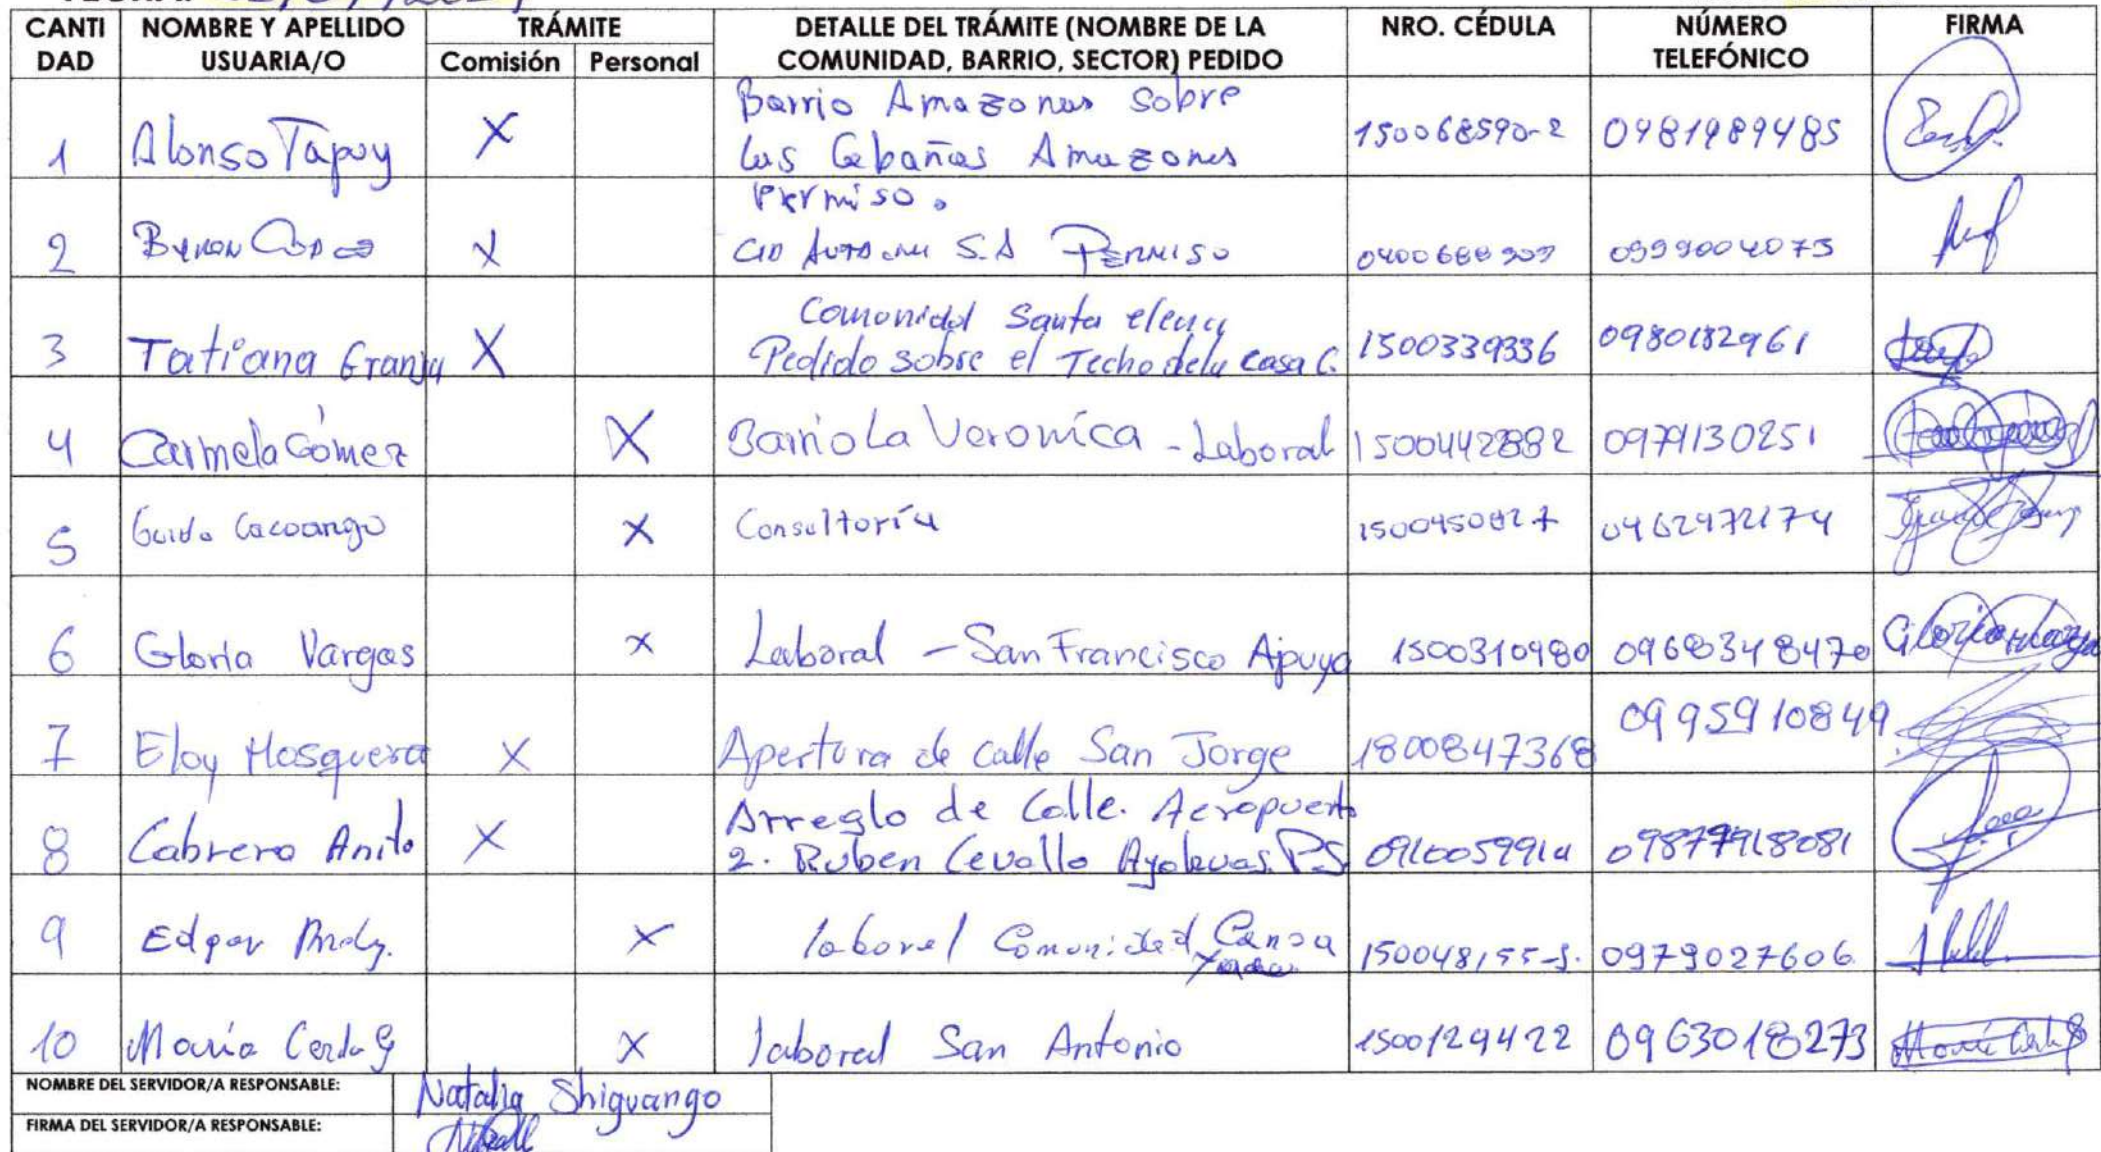 CANTIDAD NOMBRE Y APELLIDO USUARIA/O TRÁMITE Comisión Personal DETALLE DEL TRÁMITE (NOMBRE DE LA COMUNIDAD, BARRIO, SECTOR) PEDIDO NRO. CÉDULA NÚMERO TELEFÓNICO FIRMA
1 Alonso Tapuy X Barrio Amazonas sobre las Cabañas Amazonas Permiso. 150068590-2 0981989485
2 Byron X S.A Permiso 0999004073
3 Tatiana Granja X Comunidad Santa elena Pedido sobre el Techo dela casa C. 1500339336 0980182961
4 Carmela Gómez X Barrio La Veronica - Laboral 1500442882 0979130251
5 Guido Cacoango X Consultoría 0962972174
6 Gloria Vargas X Laboral - San Francisco Apuya 1500310980 0968348470
7 Eloy Mosquera X Apertura de calle San Jorge 1800847368 0995910849
8 Cabrera Anito X Arreglo de Calle. Aeropuerto 2. Ruben Cevallo
9 Edgar X laboral Comunidad Canoa 0979027606
10 María Cerda G X laboral San Antonio 1500129422 0963018273
NOMBRE DEL SERVIDOR/A RESPONSABLE: Natalia Shiguango
FIRMA DEL SERVIDOR/A RESPONSABLE: